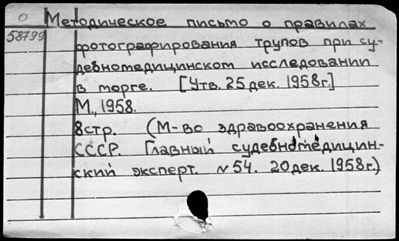 О Методическое письмо о правилах
58799 фотографирования трупов при су-
дебномедицинском исследовании
в морге. [Утв. 25 дек. 1958г.]
М., 1958.
8стр. (М-во здравоохранения
СССР. Главный судебномедицин-
ский эксперт. №54. 20 дек. 1958г.)